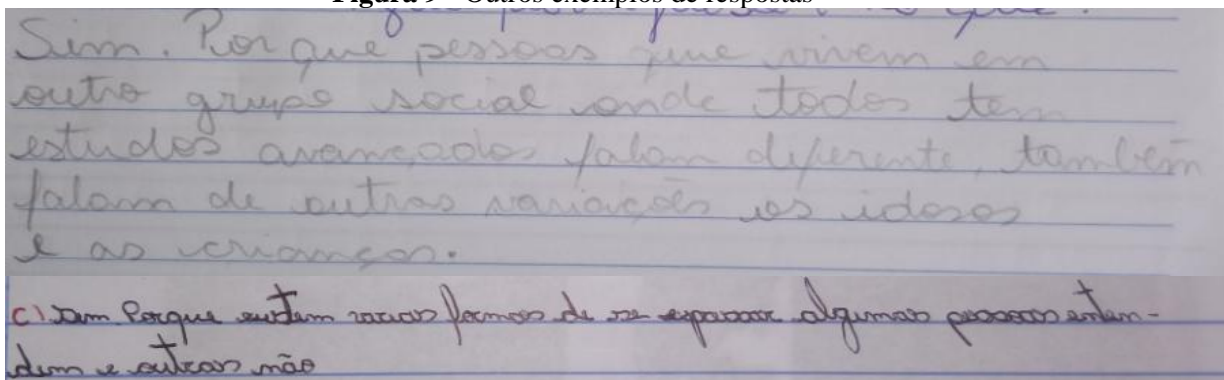 Figura 9 – Outros exemplos de respostas
Sim. Por que pessoas que vivem em
outro grupo social onde todos tem
estudos avançados falam diferente, também
falam de outras variações os idosos
e as crianças.
c) Sim. Porque existem varias formas de se expassar algumas pessoas enten-
dem e outras não